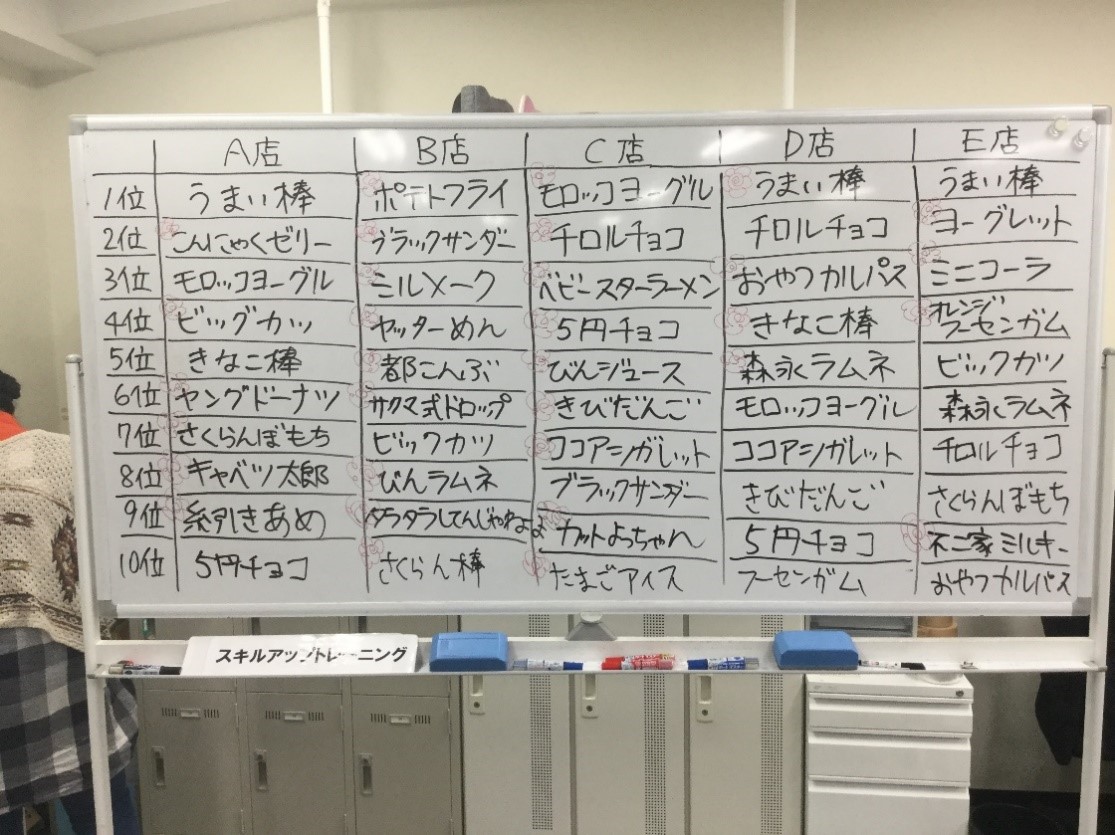 A店 B店 C店 D店 E店
1位 うまい棒 ポテトフライ モロッコヨーグル うまい棒 うまい棒
2位 こんにゃくゼリー ブラックサンダー チロルチョコ チロルチョコ ヨーグレット
3位 モロッコヨーグル ミルメーク ベビースターラーメン おやつカルパス ミニコーラ
4位 ビッグカツ ヤッターめん 5円チョコ きなこ棒 オレンジフーセンガム
5位 きなこ棒 都こんぶ びんジュース 森永ラムネ ビックカツ
6位 ヤングドーナツ サクマ式ドロップ きびだんご モロッコヨーグル 森永ラムネ
7位 さくらんぼもち ビックカツ ココアシガレット ココアシガレット チロルチョコ
8位 キャベツ太郎 びんラムネ ブラックサンダー きびだんご さくらんぼもち
9位 糸引きあめ タラタラしてんじゃねーよ カットよっちゃん 5円チョコ 不二家ミルキー
10位 5円チョコ さくらん棒 たまごアイス フーセンガム おやつカルパス
スキルアップトレーニング